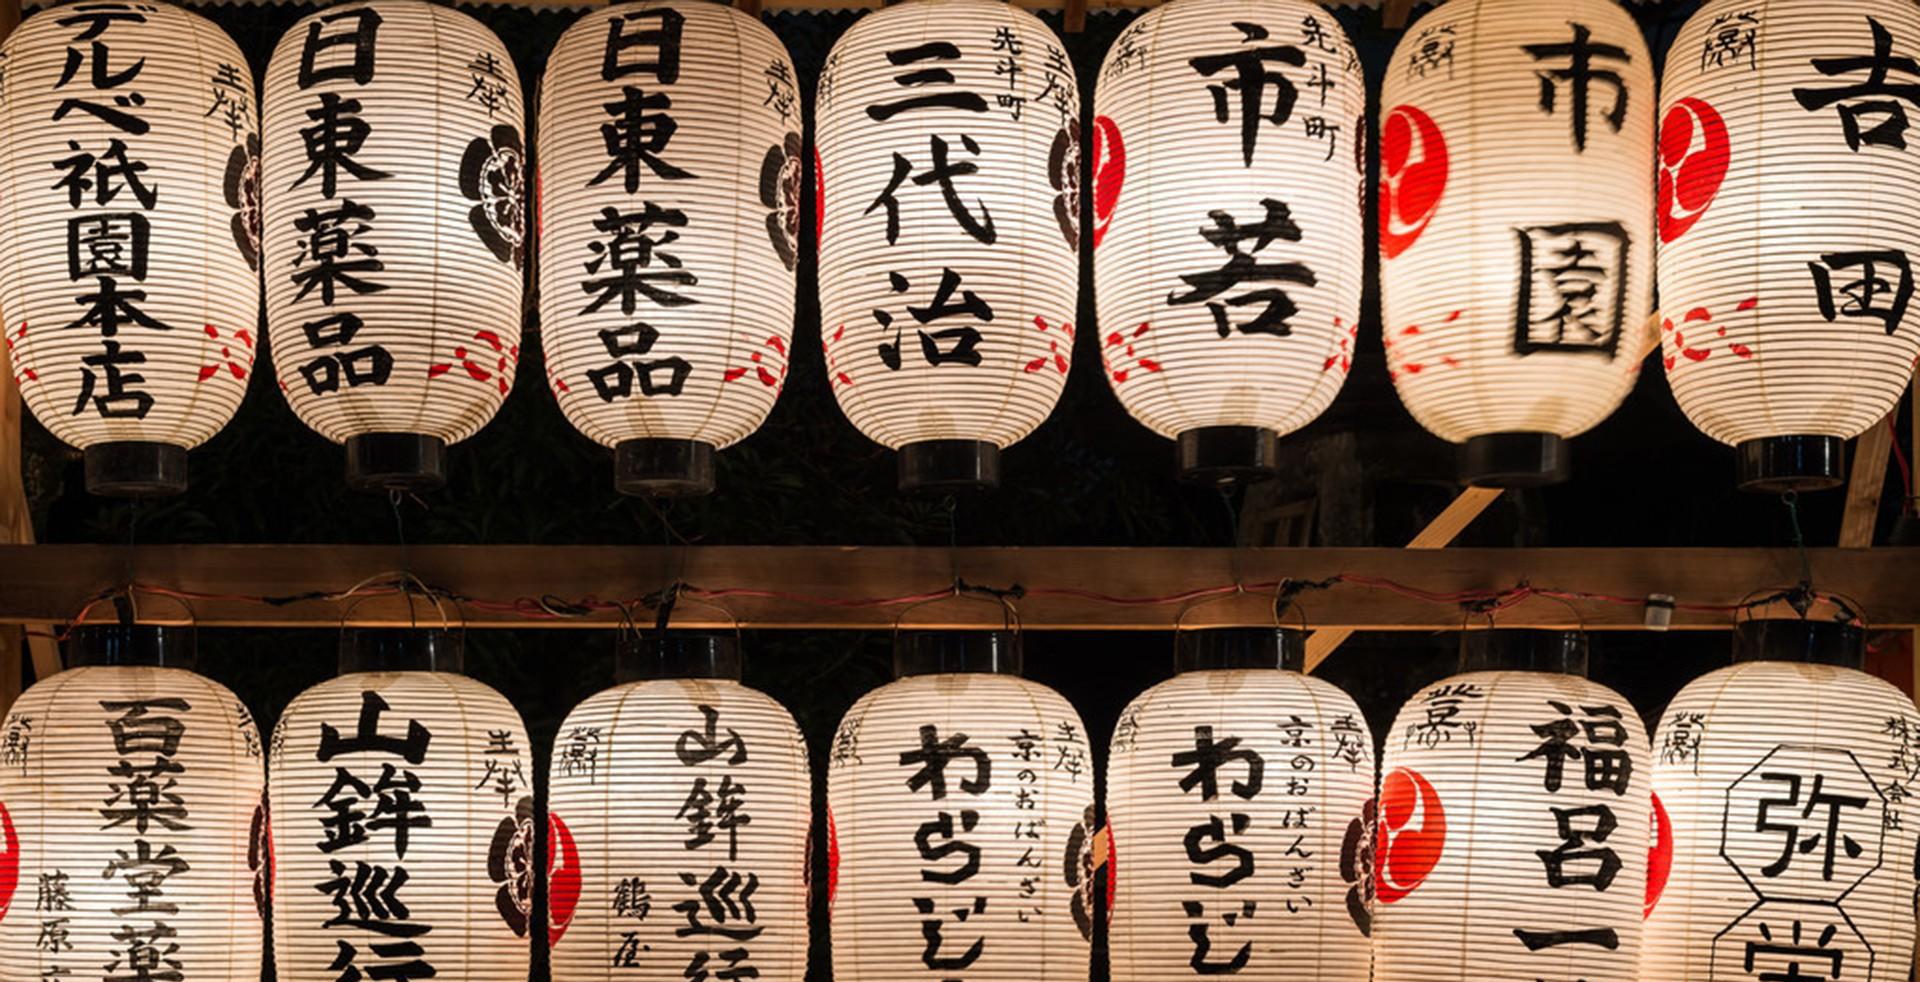 デルベ祇園本店
奉献
日東薬品
奉献
日東薬品
奉献
先斗町
三代治
奉献
先斗町
市若
市園
吉田
百薬堂薬
藤原
山鉾巡行
奉献
山鉾巡行
鶴屋
京のおばんざい
わらじ
奉献
京のおばんざい
わらじ
奉献
福呂一
株式会社
弥
堂